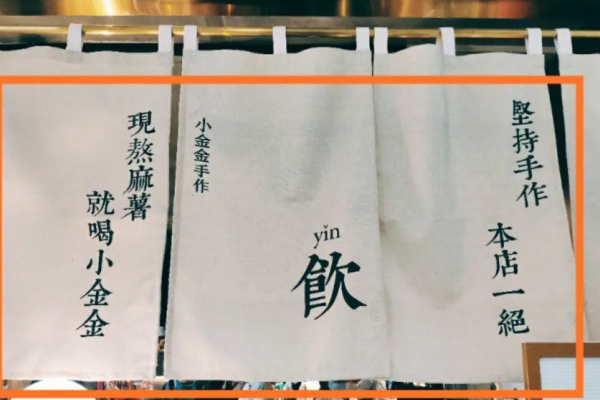 堅持手作
本店一絕
小金金手作
yǐn
飲
現熬麻薯
就喝小金金